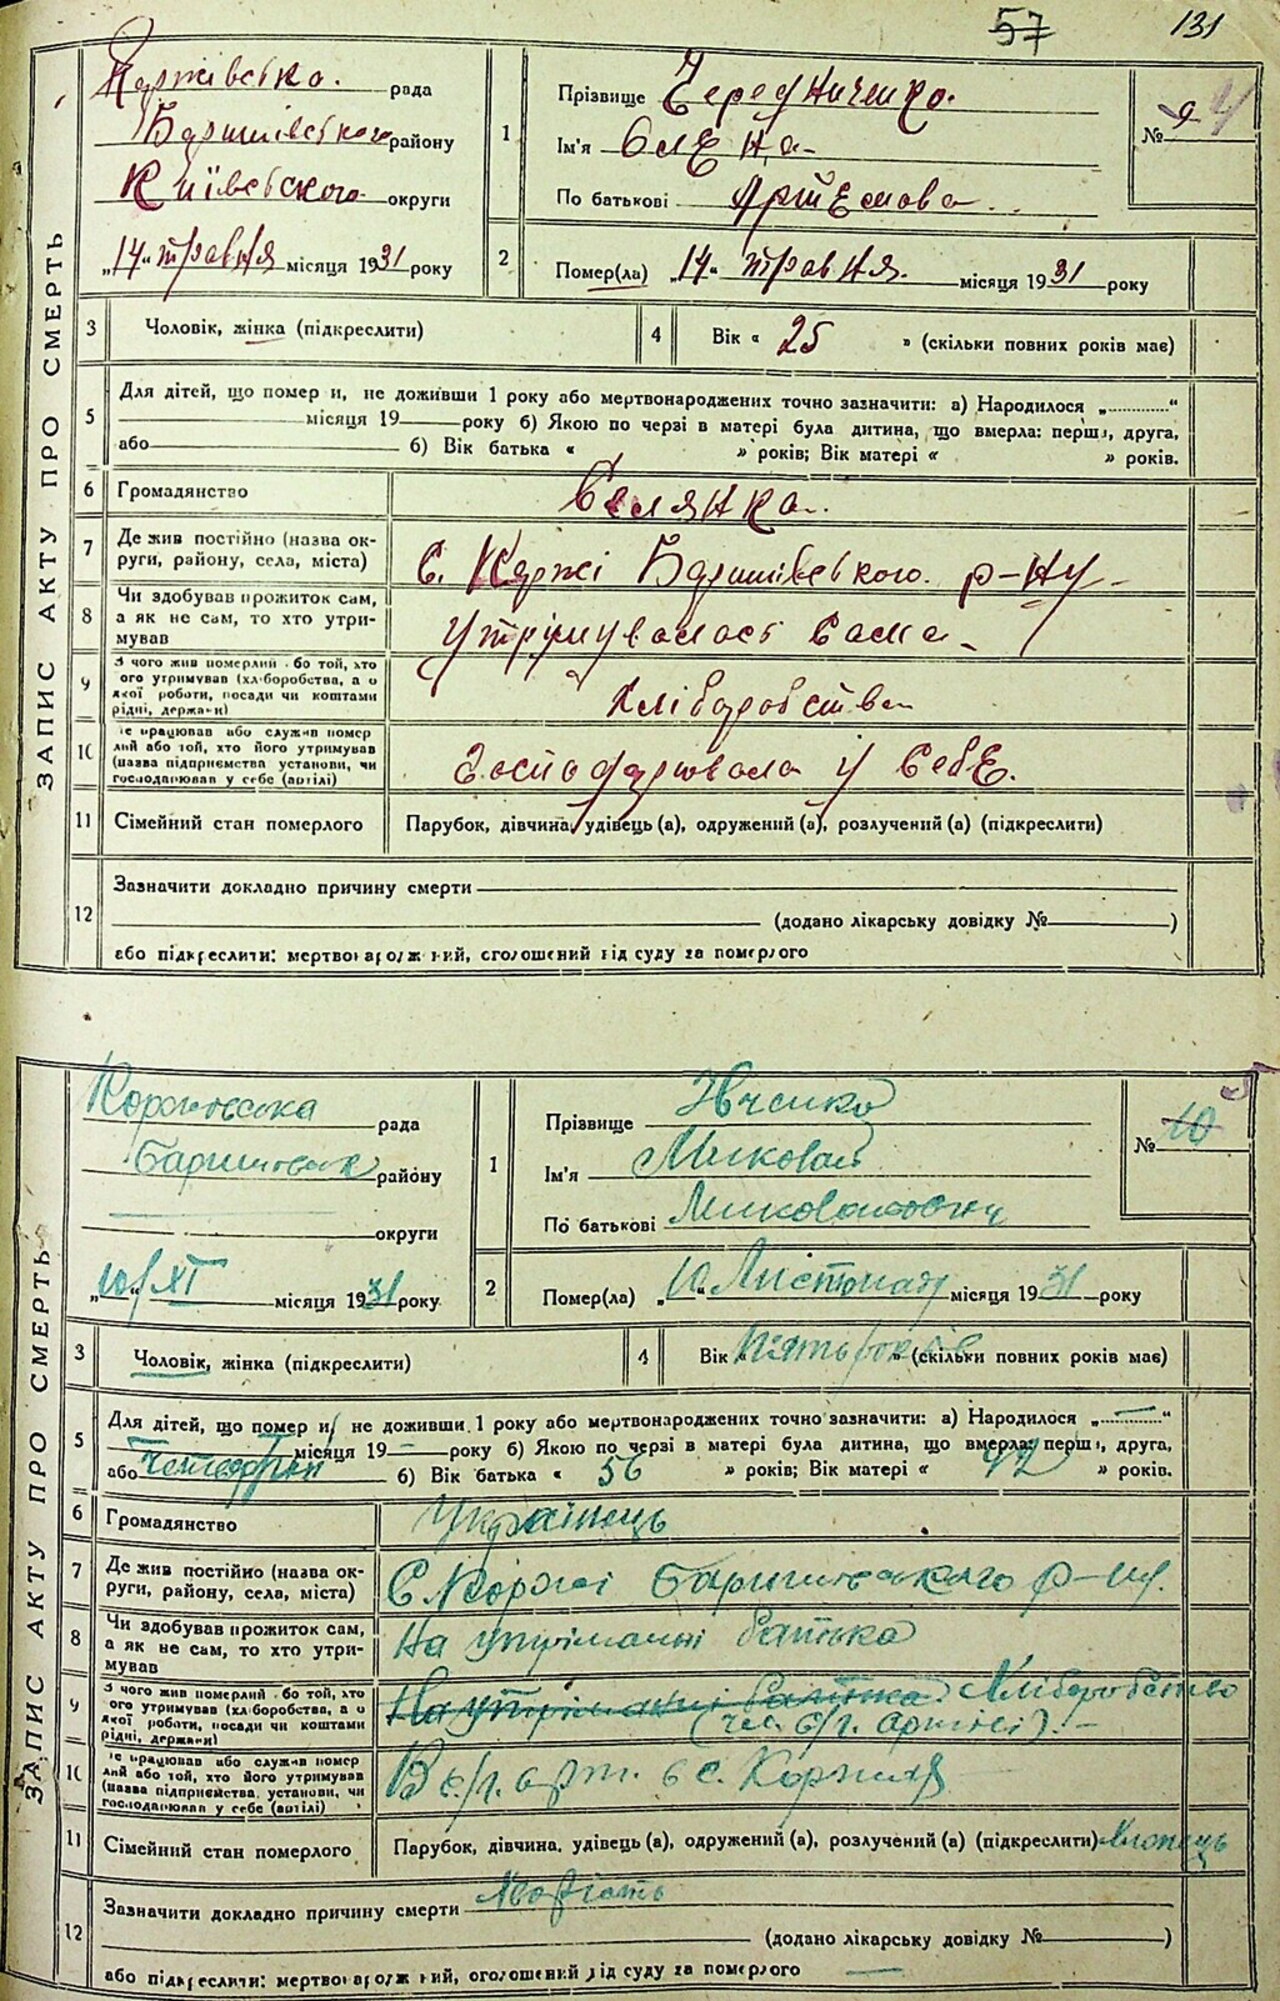 57 131
ЗАПИС АКТУ ПРО СМЕРТЬ
Коржівська рада
Баришівського району
Київського округи
„14“ травня місяця 1931 року
1
Прізвище Чередниченко
Ім'я Олена
По батькові Артемова
№ 9 4
2 Помер(ла) „14“ травня місяця 1931 року
3 Чоловік, жінка (підкреслити)
4 Вік « 25 » (скільки повних років має)
5 Для дітей, що помер и, не доживши 1 року або мертвонароджених точно зазначити: а) Народилося „............“
місяця 19 року б) Якою по черзі в матері була дитина, що вмерла: перша, друга,
або б) Вік батька « » років; Вік матері « » років.
6 Громадянство Селянка
7 Де жив постійно (назва округи, району, села, міста) С. Коржі Баришівського р-ну
8 Чи здобував прожиток сам, а як не сам, то хто утримував утрімувалась сама
9 З чого жив померлий бо той, хто ого утримував (хліборобства, а о якої роботи, посади чи коштами рідні, держави) хліборобства
10 е працював або служив помер лий або той, хто його утримував (назва підприємства установи, чи господарював у себе (артілі) Господарювала у себе.
11 Сімейний стан померлого Парубок, дівчина, удівець (а), одружений (а), розлучений (а) (підкреслити)
12 Зазначити докладно причину смерти
(додано лікарську довідку № )
або підкреслити: мертвонароджений, оголошений від суду за померлого
ЗАПИС АКТУ ПРО СМЕРТЬ
рада
району
округи
„10“ XI місяця 1931 року
1
Прізвище Івченко
Ім'я Миколай
По батькові Миколайович
№ 10 5
2 Помер(ла) „10“ Листопада місяця 1931 року
3 Чоловік, жінка (підкреслити)
4 Вік « пять років » (скільки повних років має)
5 Для дітей, що помер и, не доживши 1 року або мертвонароджених точно зазначити: а) Народилося „............“
місяця 19 року б) Якою по черзі в матері була дитина, що вмерла: перша, друга,
або б) Вік батька « 56 » років; Вік матері « 42 » років.
6 Громадянство Українець
7 Де жив постійно (назва округи, району, села, міста) С Коржі Баришівського р-ну.
8 Чи здобував прожиток сам, а як не сам, то хто утримував На утріманні батька
9 З чого жив померлий бо той, хто ого утримував (хліборобства, а о якої роботи, посади чи коштами рідні, держави) На утріманні батька Хліборобство
(чл. с/г. артілі).
10 е працював або служив помер лий або той, хто його утримував (назва підприємства установи, чи господарював у себе (артілі) В с/г. арт. в с. Коржах
11 Сімейний стан померлого Парубок, дівчина, удівець (а), одружений (а), розлучений (а) (підкреслити) Хлопець
12 Зазначити докладно причину смерти
(додано лікарську довідку № )
або підкреслити: мертвонароджений, оголошений від суду за померлого